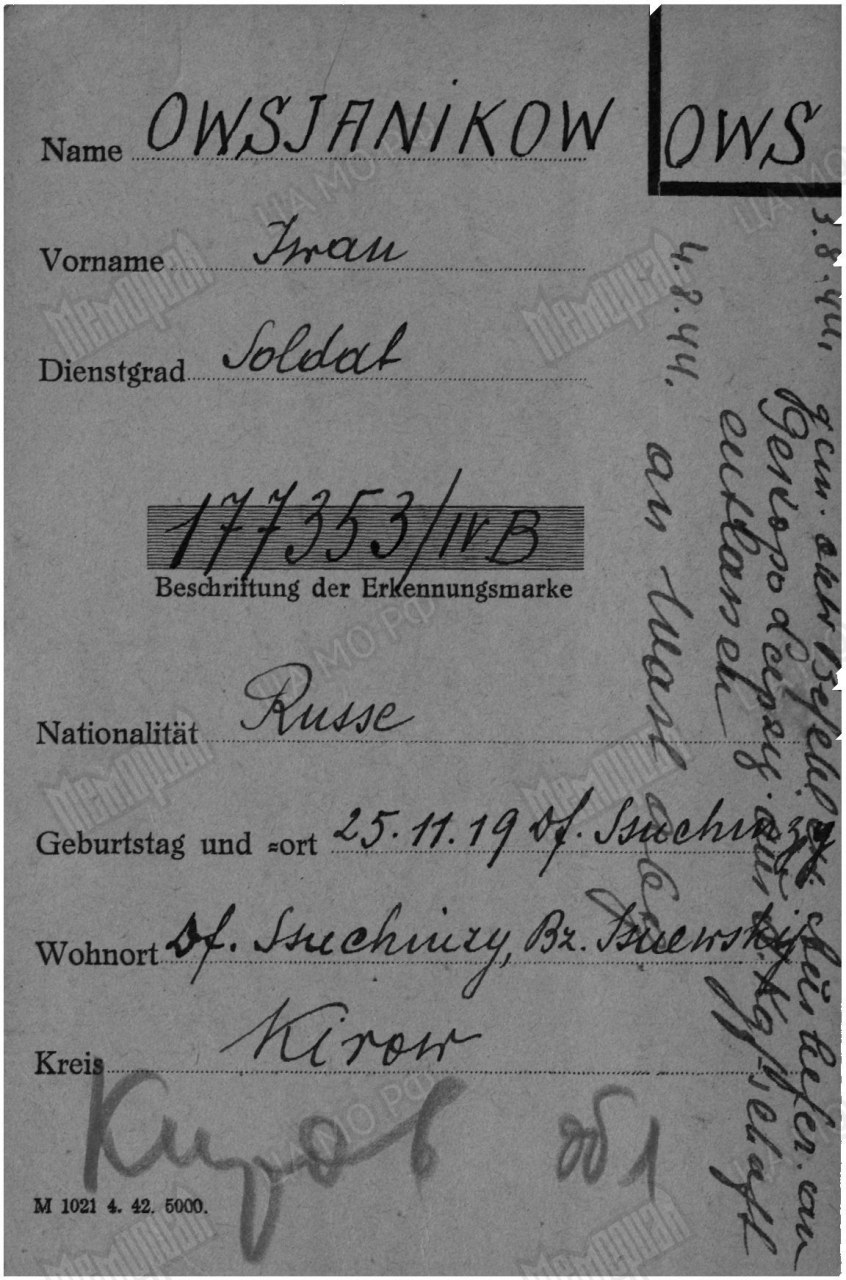 Name OWSJANIKOW
OWS
Vorname Iwan
Dienstgrad Soldat
177353/IV B
Beschriftung der Erkennungsmarke
Nationalität Russe
Geburtstag und =ort 25.11.19 Df. Ssuchinzy
Wohnort Df. Ssuchinzy, Bz. Ssuewskij
Kreis Kirow
Киров об1
M 1021 4. 42. 5000.
3.8.44. gem. Befehl Ausliefer. an
Gestapo Leipzig aus d. Kgfschaft
entlassen
4.8.44. an Wast abg.
Мемориал
ЦА МО РФ